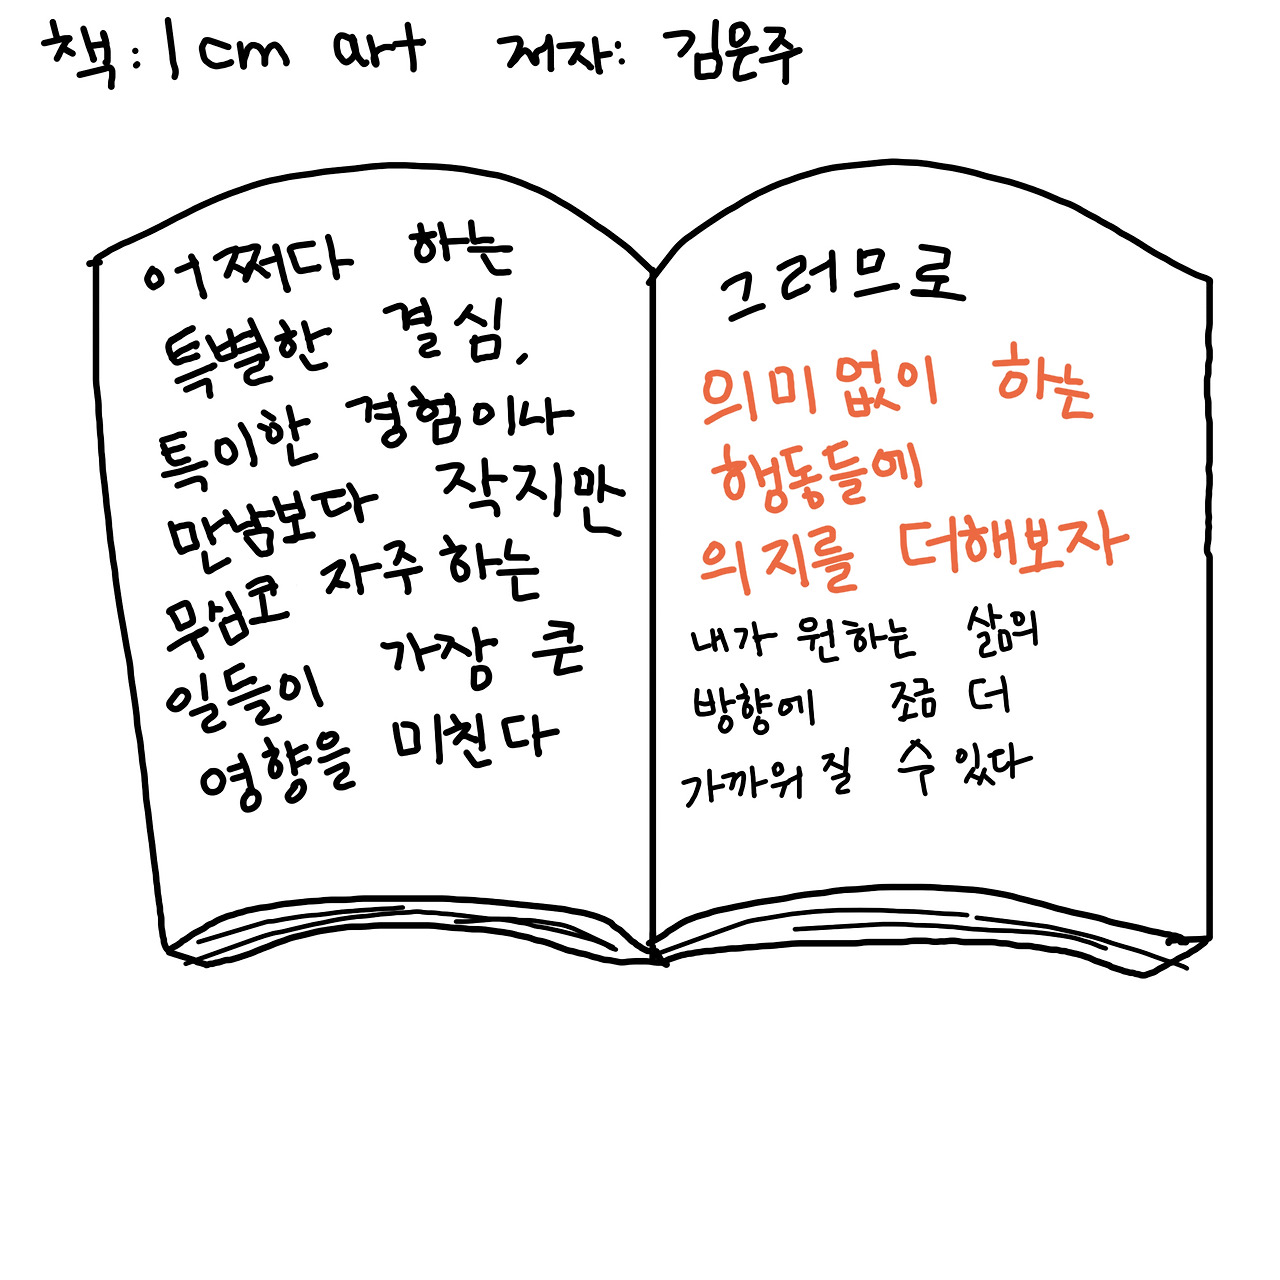 책: 1cm art 저자: 김은주
어쩌다 하는
특별한 결심,
특이한 경험이나
만남보다 작지만
무심코 자주 하는
일들이 가장 큰
영향을 미친다
그러므로
의미 없이 하는
행동들에
의지를 더해보자
내가 원하는 삶의
방향에 조금 더
가까워 질 수 있다